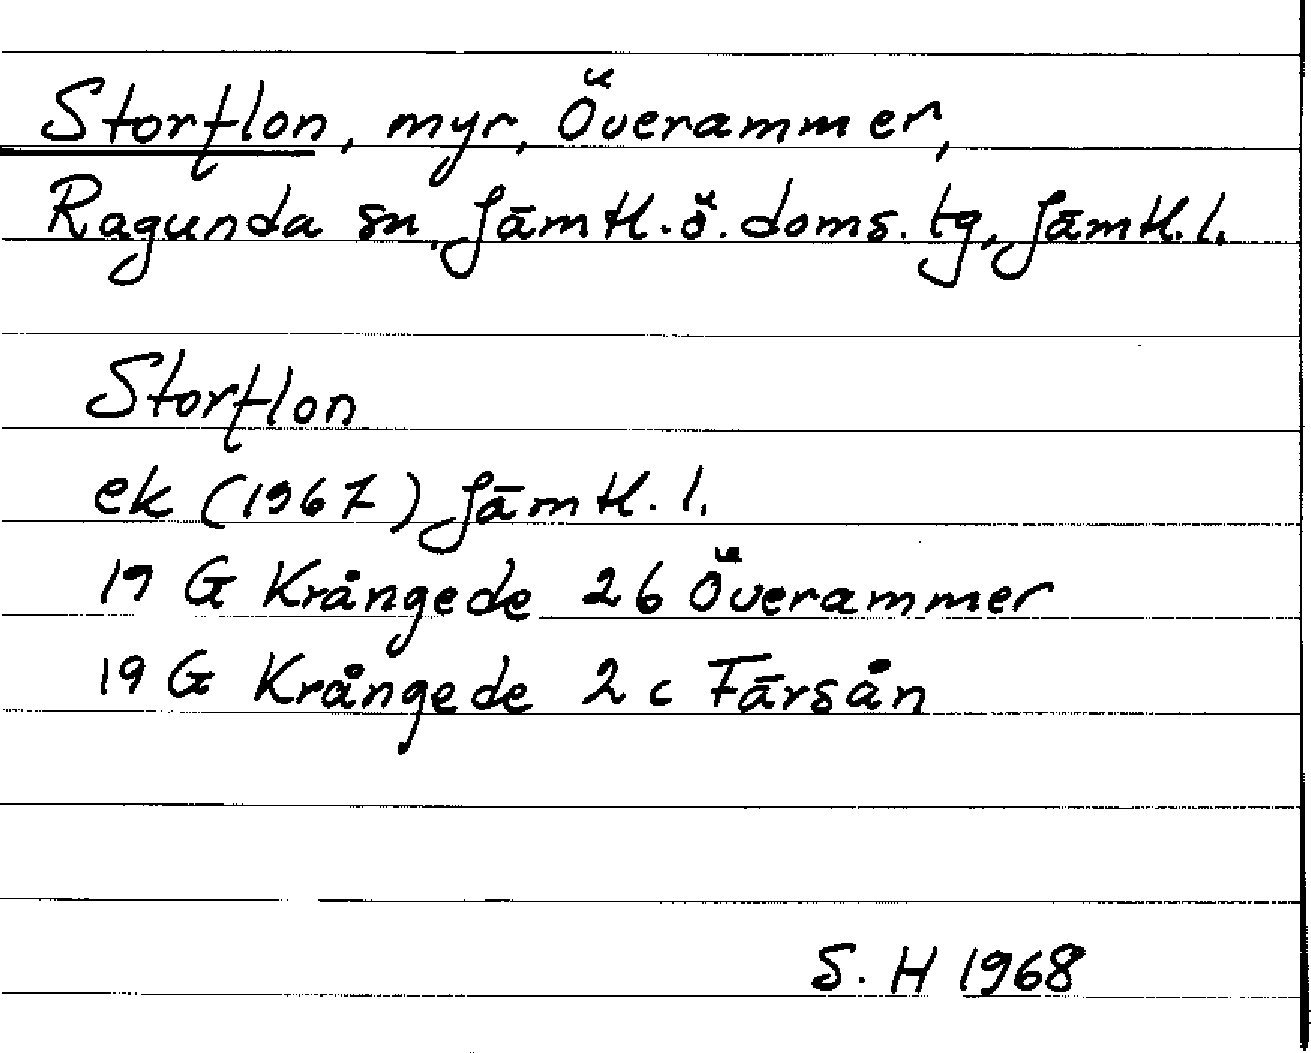 Storflon, myr, Överammer,
Ragunda sn, Jämtl. ö. doms. tg, Jämtl. l.
Storflon
ek (1967) Jämtl. l.
19 G Krångede 2b Överammer
19 G Krångede 2c Färsån
S. H 1968